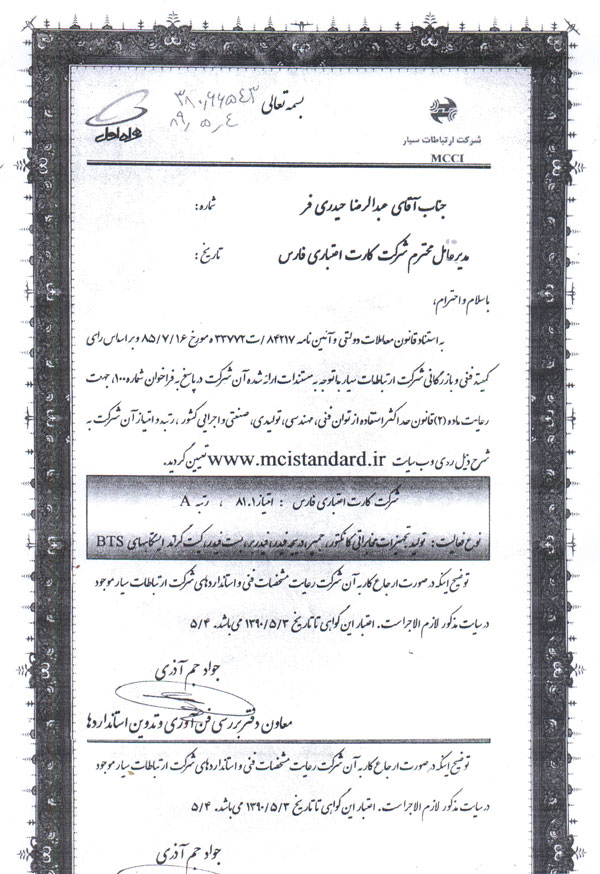 بسمه تعالی
۳۸۰,۶۶۵۴۳
۸۹,۵,۴
همراه اول
شرکت ارتباطات سیار
MCCI
جناب آقای عبدالرضا حیدری فر
شماره :
مدیرعامل محترم شرکت کارت اعتباری فارس
تاریخ :
باسلام و احترام،
به استناد قانون معاملات دولتی و آئین نامه ۸۴۲۱۷ /ت ۳۳۷۷۲ ه مورخ ۸۵/۷/۱۶ و بر اساس رای
کمیته فنی و بازرگانی شرکت ارتباطات سیار با توجه به مستندات ارائه شده آن شرکت در پاسخ به فراخوان شماره ۱۰۰، جهت
رعایت ماده (۲) قانون حداکثر استفاده از توان فنی، مهندسی، تولیدی، صنعتی و اجرایی کشور ، رتبه و امتیاز آن شرکت به
شرح ذیل روی وب سایت www.mcistandard.ir تعیین گردید.
شرکت کارت اعتباری فارس : امتیاز ۸۱.۱ ، رتبه A
نوع فعالیت: تولید تجهیزات مخابراتی کانکتور، جمپر، ادیم فیدر، فیدربر، بست فیدر، کیت گراند ایستگاههای BTS
توضیح اینکه در صورت ارجاع کار به آن شرکت رعایت مشخصات فنی و استانداردهای شرکت ارتباطات سیار موجود
در سایت مذکور لازم الاجراست. اعتبار این گواهی تا تاریخ ۱۳۹۰/۵/۳ می باشد. ۵/۴
جواد جم آذری
معاون دفتر بررسی فن آوری و تدوین استانداردها
توضیح اینکه در صورت ارجاع کار به آن شرکت رعایت مشخصات فنی و استانداردهای شرکت ارتباطات سیار موجود
در سایت مذکور لازم الاجراست. اعتبار این گواهی تا تاریخ ۱۳۹۰/۵/۳ می باشد. ۵/۴
جواد جم آذری